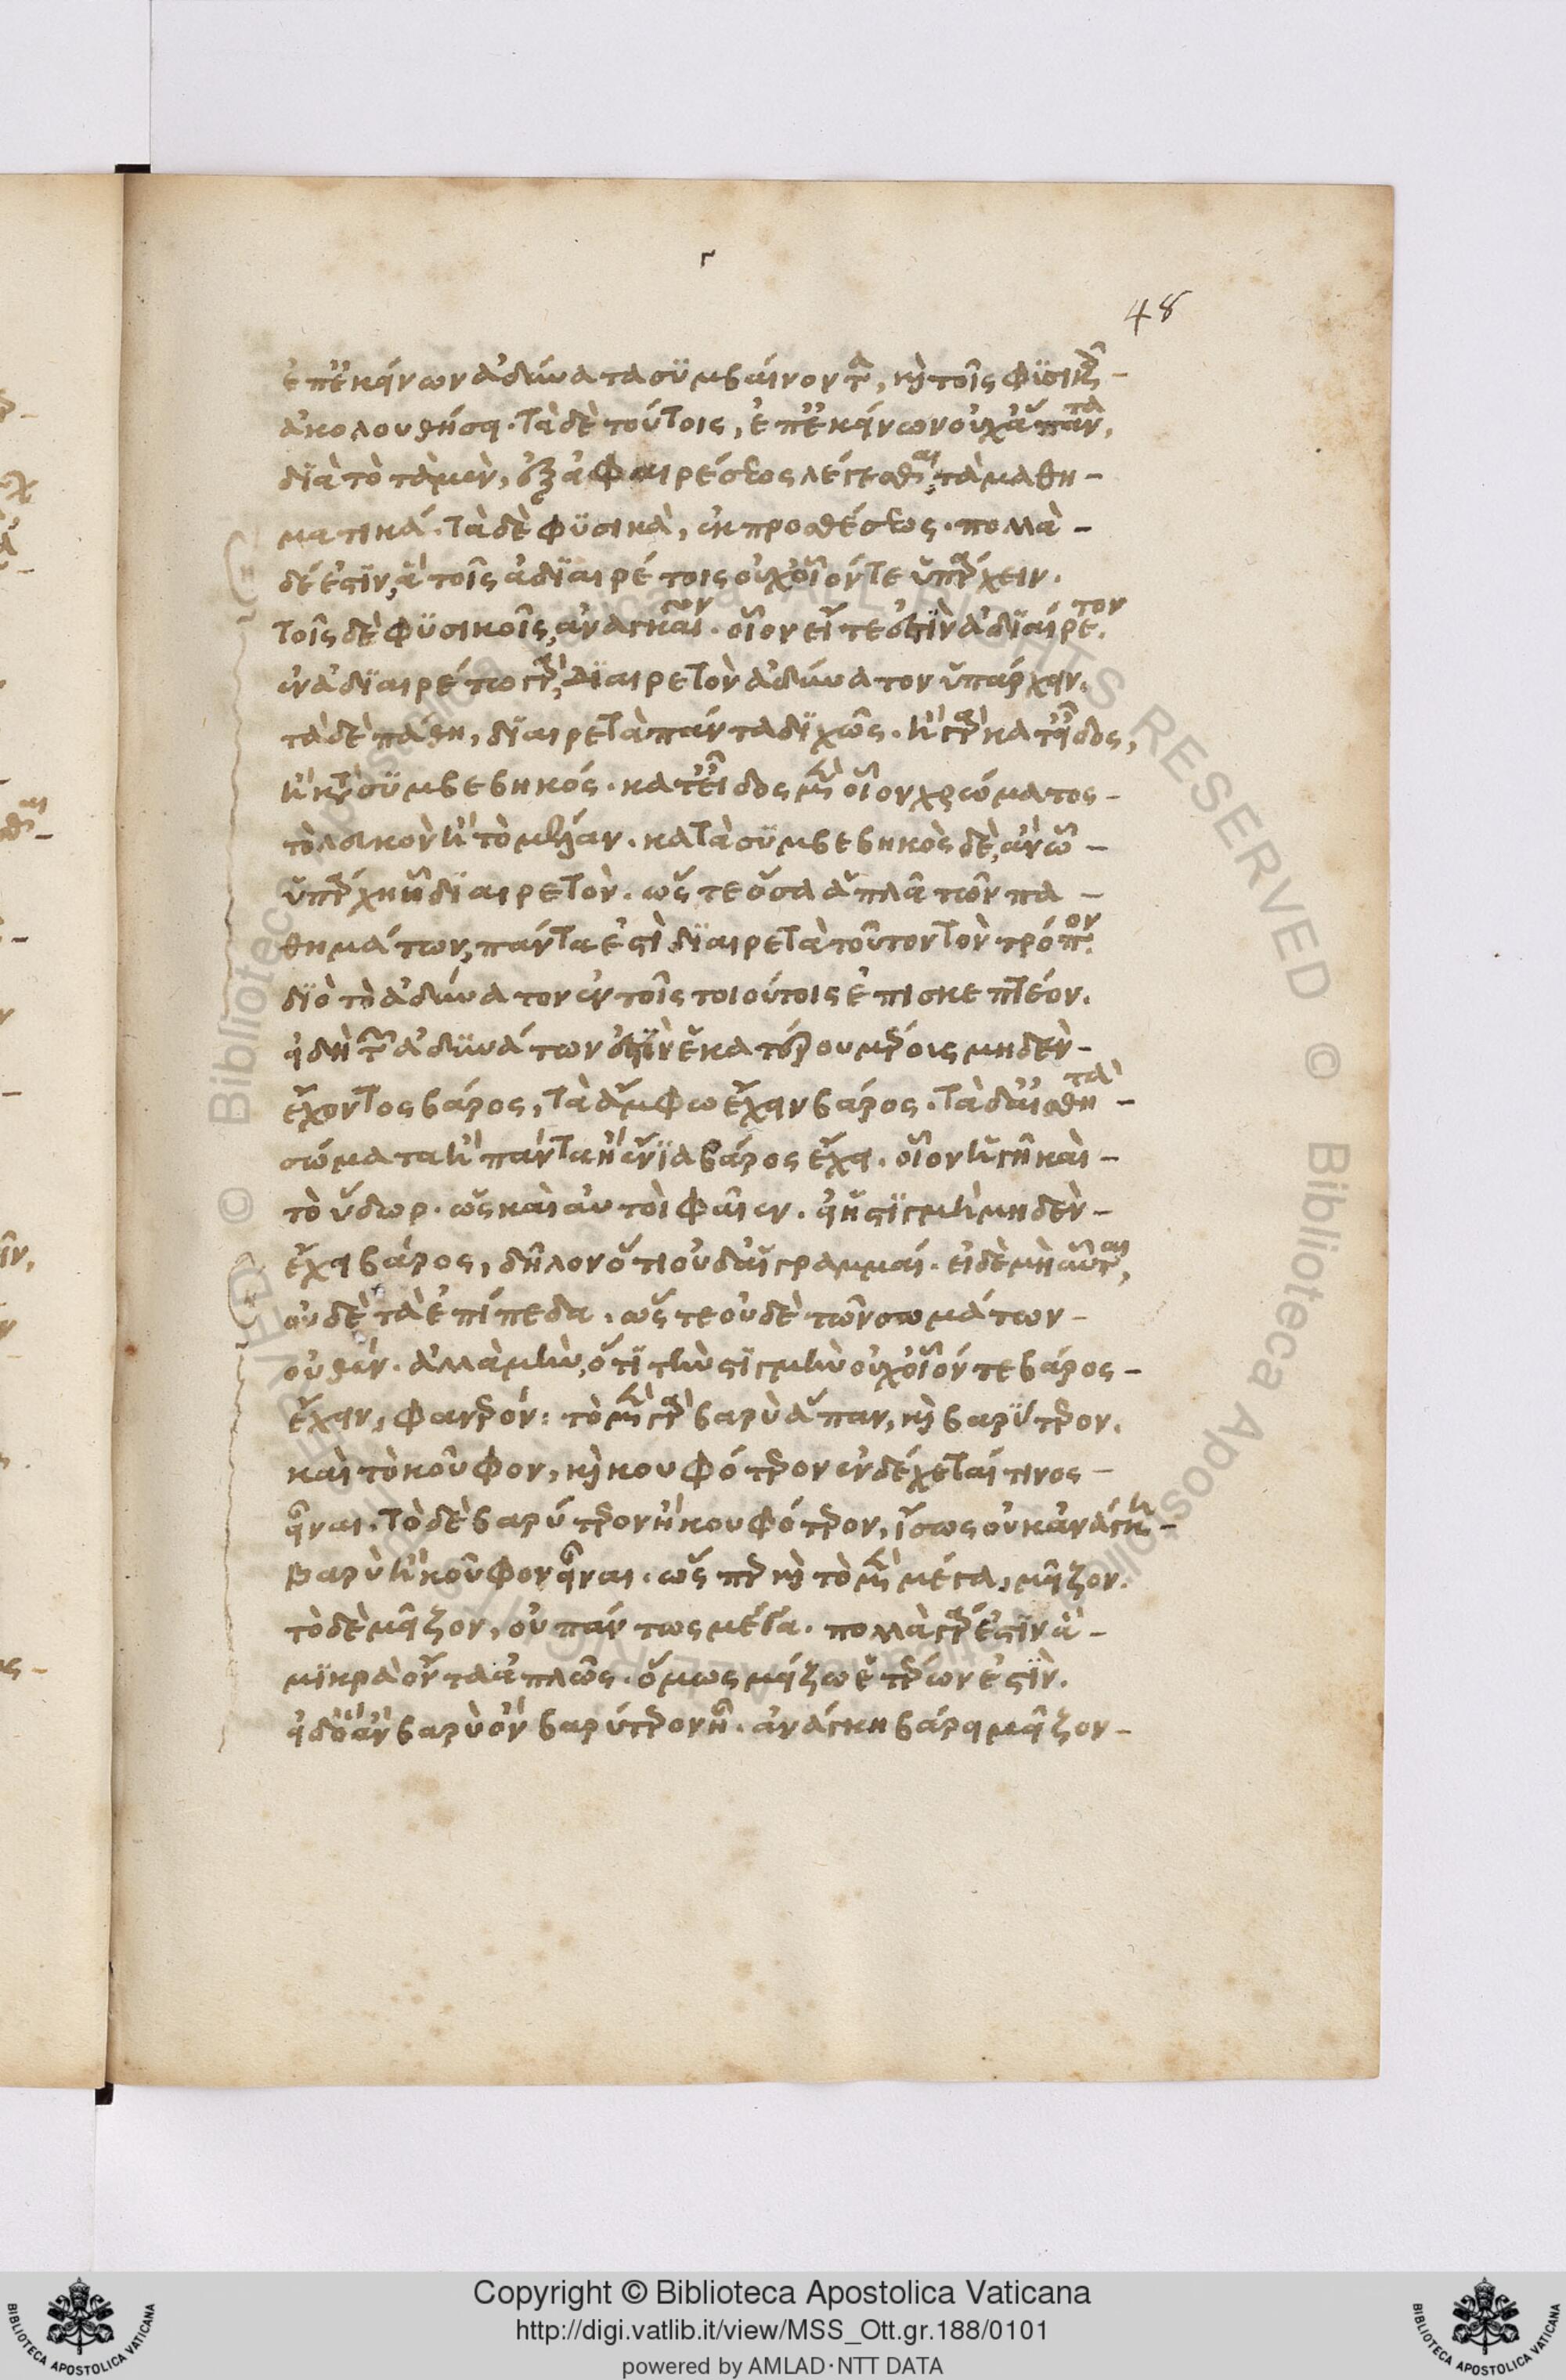 ἐπ' ἐκείνων ἀδύνατα συμβαίνοντα, καὶ τοῖς φυσικοῖς -
ἀκολουθήσει. τὰ δὲ τούτοις, ἐπ' ἐκείνων οὐχ ἅπαντα,
διὰ τὸ τὰ μὲν, ἐξ ἀφαιρέσεως λέγεσθαι, τὰ μαθη -
ματικά. τὰ δὲ φυσικὰ, ἐκ προσθέσεως. πολλὰ -
δέ ἐστιν, ἃ τοῖς ἀδιαιρέτοις οὐχ οἷόν τε ὑπάρχειν.
τοῖς δὲ φυσικοῖς, ἀναγκαῖον. οἷον εἴ τε ἐστὶν ἀδιαίρετον.
ἐν ἀδιαιρέτω γὰρ, διαιρετὸν ἀδύνατον ὑπάρχειν.
τὰ δὲ πάθη, διαιρετὰ πάντα διχῶς. ἢ γὰρ κατ' εἶδος,
ἢ κατὰ συμβεβηκός. κατ' εἶδος μὲν οἷον χρώματος -
τὸ λευκὸν ἢ τὸ μέλαν. κατὰ συμβεβηκὸς δὲ, ἂν ὧ -
ὑπάρχη ἢ διαιρετὸν. ὥς τε ὅσα ἁπλᾶ τῶν πα -
θημάτων, πάντα ἐστὶ διαιρετὰ τοῦτον τὸν τρόπον.
διὸ τὸ ἀδύνατον ἐν τοῖς τοιούτοις ἐπισκεπτέον.
εἰ δὴ τῶν ἀδυνάτων ἐστὶν ἑκατέρου μέροις μηδὲν -
ἔχοντος βάρος, τὰ ἄμφω ἔχειν βάρος. τὰ δ' αἰσθητὰ -
σώματα ἢ πάντα ἢ ἔνια βάρος ἔχει. οἷον ἡ γῆ καὶ -
τὸ ὕδωρ. ὡς καὶ αὐτοὶ φαῖεν. εἰ ἡ στιγμὴ μηδὲν -
ἔχει βάρος, δῆλον ὅτι οὐδ' αἱ γραμμαί. εἰ δὲ μὴ αὗται,
οὐδὲ τὰ ἐπίπεδα. ὥς τε οὐδὲ τῶν σωμάτων -
οὐθέν. ἀλλὰ μὴν, ὅτι τὴν στιγμὴν οὐχ οἷόν τε βάρος -
ἔχειν, φανερόν: τὸ μὲν γὰρ βαρὺ ἅπαν, καὶ βαρύτερον.
καὶ τὸ κοῦφον, καὶ κουφότερον ἐνδέχεταί τινος -
εἶναι. τὸ δὲ βαρύτερον ἢ κουφότερον, ἴσως οὐκ ἀνάγκη -
βαρὺ ἢ κοῦφον εἶναι. ὥς περ καὶ τὸ μὲν μέγα, μεῖζον.
τὸ δὲ μεῖζον, οὐ πάντως μέγα. πολλὰ γάρ ἐστιν ἃ -
μικρὰ ὄντα ἁπλῶς. ὅμως μείζω ἑτέρων ἐστὶν.
εἰ δ' ὃ ἂν βαρὺ ὂν βαρύτερον ἦ. ἀνάγκη βάρει μεῖζον -
48
Copyright © Biblioteca Apostolica Vaticana
http://digi.vatlib.it/view/MSS_Ott.gr.188/0101
powered by AMLAD·NTT DATA